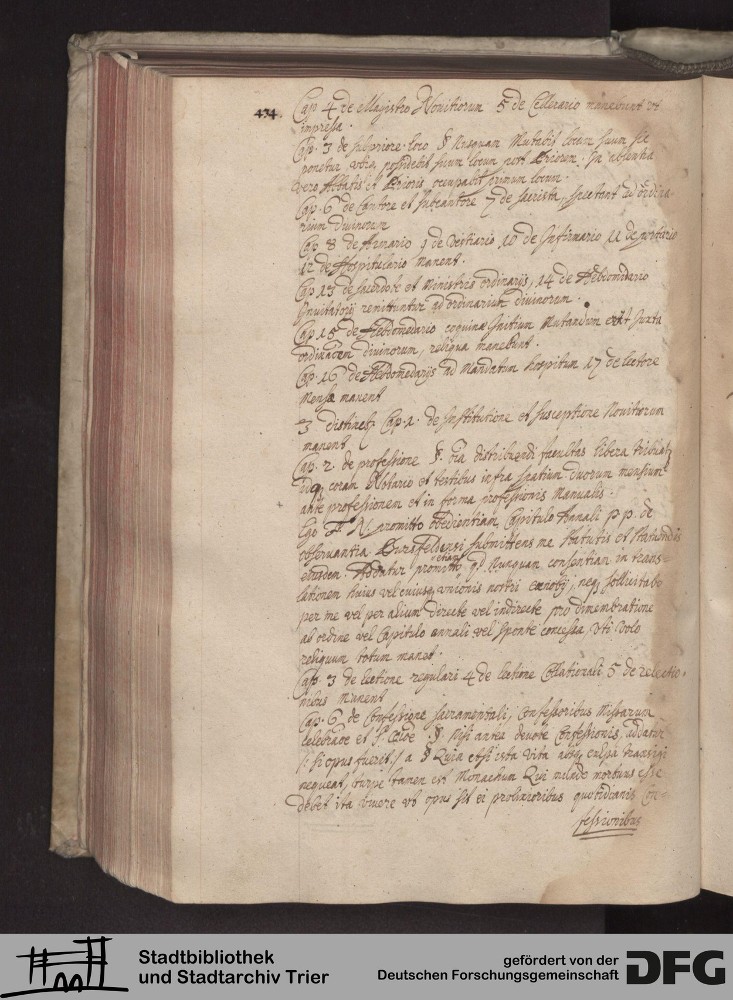 434.
Cap 4 de Magistro Novitiorum 5 de Cellerario manebunt ut
impressa.
Cap. 3 de subpriore. loco § Nusquam Mutabit locum suum
ponetur, possidebit suum locum post Priorem. In absentia
vero Abbatis et Prioris occupabit primum locum.
Cap. 6 de Cantore et Subcantore 7 de Sacrista, spectant ad ordina-
rium Divinorum
Cap 8 de Armario 9 de Vestiario 10 de Infirmario 11 de portario
12 de Hospitulario manent.
Cap 13 de Sacerdote et Ministris ordinarijs, 14 de Hebdomadario
Invitatorij remittuntur ad ordinarium divinorum.
Cap. 15 de Hebdomedario coquinæ Initium Mutandum erit Juxta
ordinarium divinorum, reliqua manebunt.
Cap. 16 de Hebdomedarijs ad Mandatum hospitum 17 de lectore
Mensæ manent
3 distinct. Cap. 1. de Institutione et susceptione Novitiorum
manent.
Cap. 2. de professione §. oia distribuendi facultas libera
coram Notario et testibus infra spatium duorum mensium
ante professionem et in forma professionis Manualis.
Ego Fr. N. promitto obedientiam Capitulo Annali p. p. de
observantia Bursfeldensi submittens me statutis et statuendis
eiusdem. Addatur promitto etiam qd Nunquam consentiam in trans-
lationem huius vel cuiusq unionis nostri cœnobij, neq sollicitabo
per me vel per alium directe vel indirecte pro dimembratione
ab ordine vel Capitulo annali vel sponte concessa, uti volo
reliquum totum manet.
Cap. 3 de lectione regulari 4 de lectione Collationali, 5 de refectio-
nibus Manent
Cap. 6 de Confessione sacramentali, Confessoribus Missarum
celebrade et § Nisi antea devote Confessionis, addatur
/: si opus fuerit :/ a § Quia etsi ista vita absq culpa transigi
nequeat, turpe tamen est Monachum Qui mundo mortuus esse
debet ita vivere ut opus sit ei prolixioribus quotidianis Con-
fessionibus
Stadtbibliothek
und Stadtarchiv Trier
gefördert von der
Deutschen Forschungsgemeinschaft
DFG